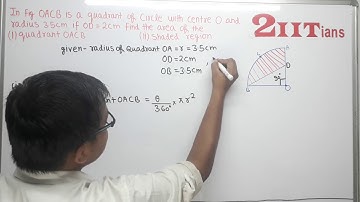 In Fig OACB is a quadrant of Circle with centre O and
radius 3.5cm if OD = 2cm find the area of the
(i) quadrant OACB (ii) shaded region
2IITians
given- radius of Quadrant OA = r = 3.5cm
OD = 2cm
OB = 3.5cm
nt OACB = θ/360° × πr²